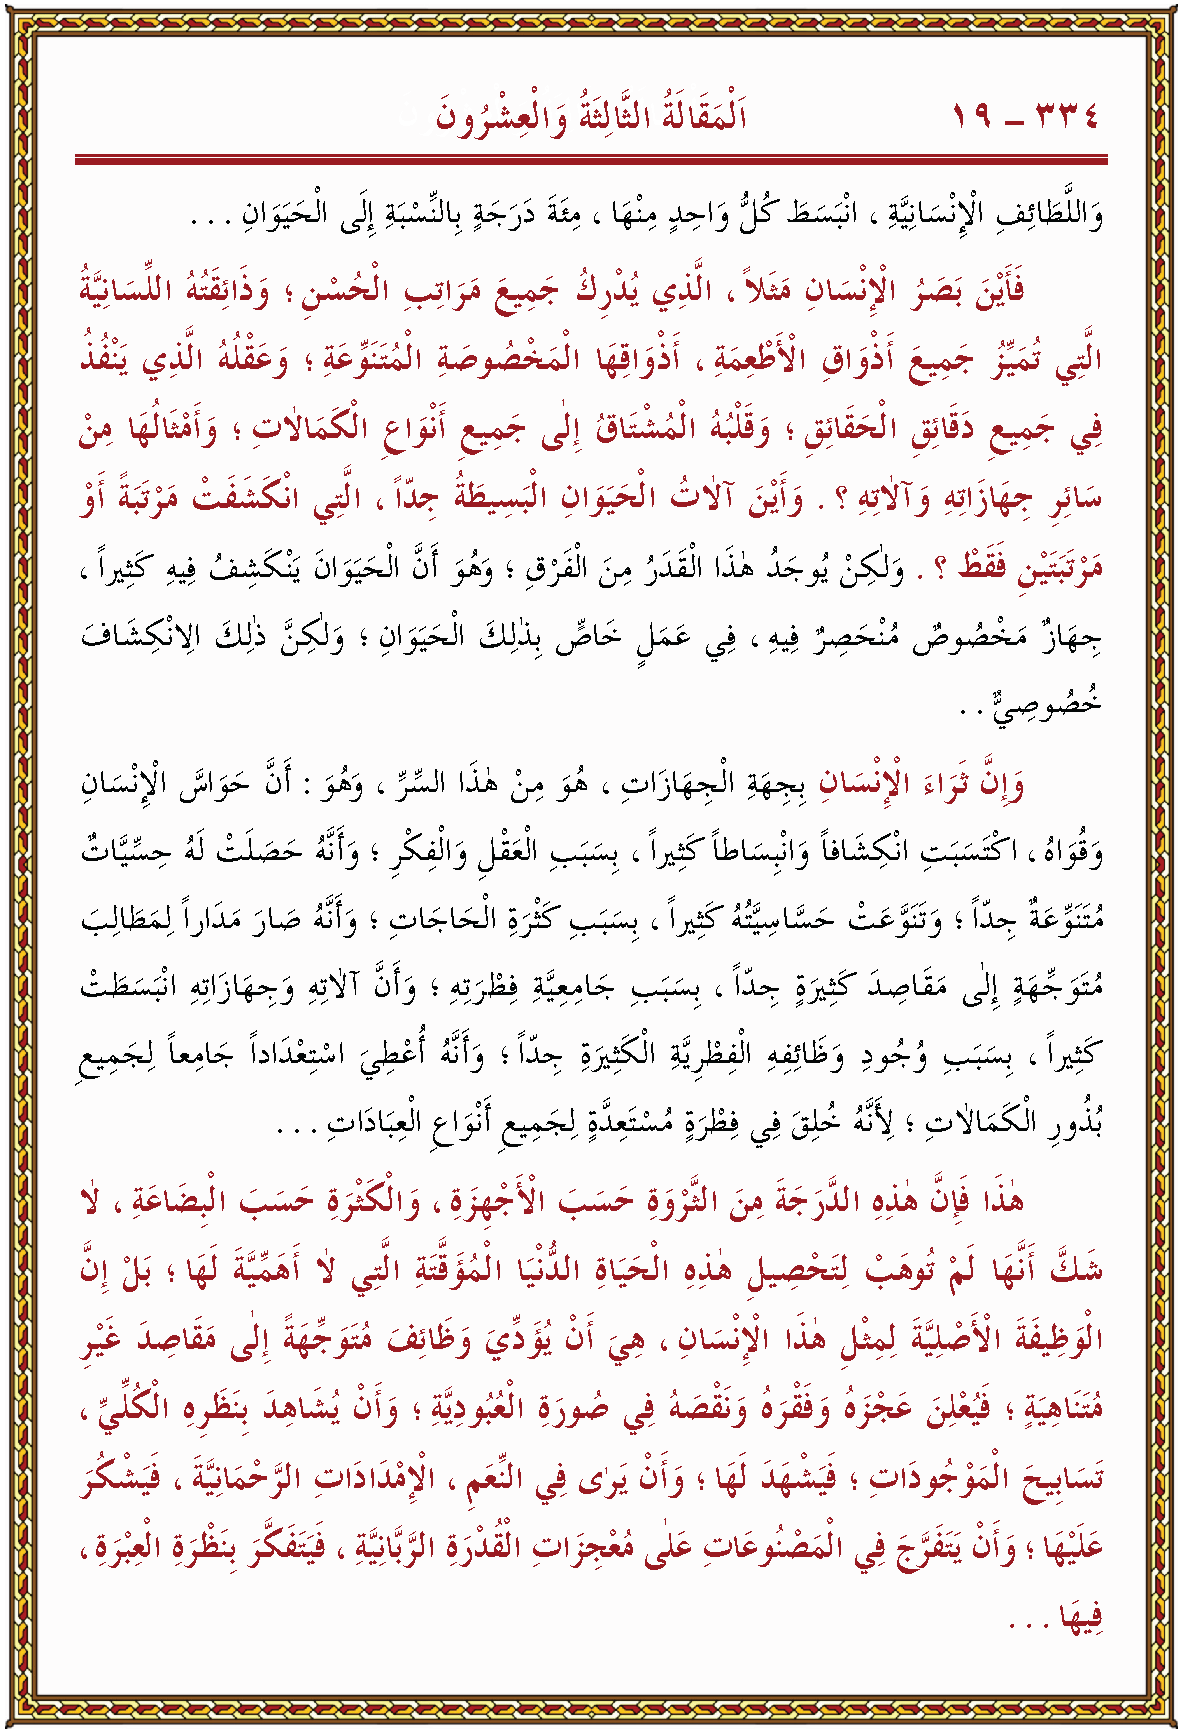 ٣٣٤ – ١٩ اَلْمَقَالَةُ الثَّالِثَةُ وَالْعِشْرُونَ
وَاللَّطَائِفِ الْإِنْسَانِيَّةِ ، انْبَسَطَ كُلُّ وَاحِدٍ مِنْهَا ، مِئَةَ دَرَجَةٍ بِالنِّسْبَةِ إِلَى الْحَيَوَانِ . . .
فَأَيْنَ بَصَرُ الْإِنْسَانِ مَثَلاً ، الَّذِي يُدْرِكُ جَمِيعَ مَرَاتِبِ الْحُسْنِ ؛ وَذَائِقَتُهُ اللِّسَانِيَّةُ
الَّتِي تُمَيِّزُ جَمِيعَ أَذْوَاقِ الْأَطْعِمَةِ ، أَذْوَاقِهَا الْمَخْصُوصَةِ الْمُتَنَوِّعَةِ ؛ وَعَقْلُهُ الَّذِي يَنْفُذُ
فِي جَمِيعِ دَقَائِقِ الْحَقَائِقِ ؛ وَقَلْبُهُ الْمُشْتَاقُ إِلٰى جَمِيعِ أَنْوَاعِ الْكَمَالَاتِ ؛ وَأَمْثَالُهَا مِنْ
سَائِرِ جِهَازَاتِهِ وَآلَاتِهِ ؟ . وَأَيْنَ آلَاتُ الْحَيَوَانِ الْبَسِيطَةُ جِدّاً ، الَّتِي انْكَشَفَتْ مَرْتَبَةً أَوْ
مَرْتَبَتَيْنِ فَقَطْ ؟ . وَلٰكِنْ يُوجَدُ هٰذَا الْقَدَرُ مِنَ الْفَرْقِ ؛ وَهُوَ أَنَّ الْحَيَوَانَ يَنْكَشِفُ فِيهِ كَثِيراً ،
جِهَازٌ مَخْصُوصٌ مُنْحَصِرٌ فِيهِ ، فِي عَمَلٍ خَاصٍّ بِذٰلِكَ الْحَيَوَانِ ؛ وَلٰكِنَّ ذٰلِكَ الِانْكِشَافَ
خُصُوصِيٌّ . .
وَإِنَّ ثَرَاءَ الْإِنْسَانِ بِجِهَةِ الْجِهَازَاتِ ، هُوَ مِنْ هٰذَا السِّرِّ ، وَهُوَ : أَنَّ حَوَاسَّ الْإِنْسَانِ
وَقُوَاهُ ، اكْتَسَبَتِ انْكِشَافاً وَانْبِسَاطاً كَثِيراً ، بِسَبَبِ الْعَقْلِ وَالْفِكْرِ ؛ وَأَنَّهُ حَصَلَتْ لَهُ حِسِّيَّاتٌ
مُتَنَوِّعَةٌ جِدّاً ؛ وَتَنَوَّعَتْ حَسَّاسِيَّتُهُ كَثِيراً ، بِسَبَبِ كَثْرَةِ الْحَاجَاتِ ؛ وَأَنَّهُ صَارَ مَدَاراً لِمَطَالِبَ
مُتَوَجِّهَةٍ إِلٰى مَقَاصِدَ كَثِيرَةٍ جِدّاً ، بِسَبَبِ جَامِعِيَّةِ فِطْرَتِهِ ؛ وَأَنَّ آلَاتِهِ وَجِهَازَاتِهِ انْبَسَطَتْ
كَثِيراً ، بِسَبَبِ وُجُودِ وَظَائِفِهِ الْفِطْرِيَّةِ الْكَثِيرَةِ جِدّاً ؛ وَأَنَّهُ أُعْطِيَ اسْتِعْدَاداً جَامِعاً لِجَمِيعِ
بُذُورِ الْكَمَالَاتِ ؛ لِأَنَّهُ خُلِقَ فِي فِطْرَةٍ مُسْتَعِدَّةٍ لِجَمِيعِ أَنْوَاعِ الْعِبَادَاتِ . . .
هٰذَا فَإِنَّ هٰذِهِ الدَّرَجَةَ مِنَ الثَّرْوَةِ حَسَبَ الْأَجْهِزَةِ ، وَالْكَثْرَةِ حَسَبَ الْبِضَاعَةِ ، لَا
شَكَّ أَنَّهَا لَمْ تُوهَبْ لِتَحْصِيلِ هٰذِهِ الْحَيَاةِ الدُّنْيَا الْمُؤَقَّتَةِ الَّتِي لَا أَهَمِّيَّةَ لَهَا ؛ بَلْ إِنَّ
الْوَظِيفَةَ الْأَصْلِيَّةَ لِمِثْلِ هٰذَا الْإِنْسَانِ ، هِيَ أَنْ يُؤَدِّيَ وَظَائِفَ مُتَوَجِّهَةً إِلٰى مَقَاصِدَ غَيْرِ
مُتَنَاهِيَةٍ ؛ فَيُعْلِنَ عَجْزَهُ وَفَقْرَهُ وَنَقْصَهُ فِي صُورَةِ الْعُبُودِيَّةِ ؛ وَأَنْ يُشَاهِدَ بِنَظَرِهِ الْكُلِّيِّ ،
تَسَابِيحَ الْمَوْجُودَاتِ ؛ فَيَشْهَدَ لَهَا ؛ وَأَنْ يَرٰى فِي النِّعَمِ ، الْإِمْدَادَاتِ الرَّحْمَانِيَّةَ ، فَيَشْكُرَ
عَلَيْهَا ؛ وَأَنْ يَتَفَرَّجَ فِي الْمَصْنُوعَاتِ عَلٰى مُعْجِزَاتِ الْقُدْرَةِ الرَّبَّانِيَّةِ ، فَيَتَفَكَّرَ بِنَظْرَةِ الْعِبْرَةِ ،
فِيهَا . . .